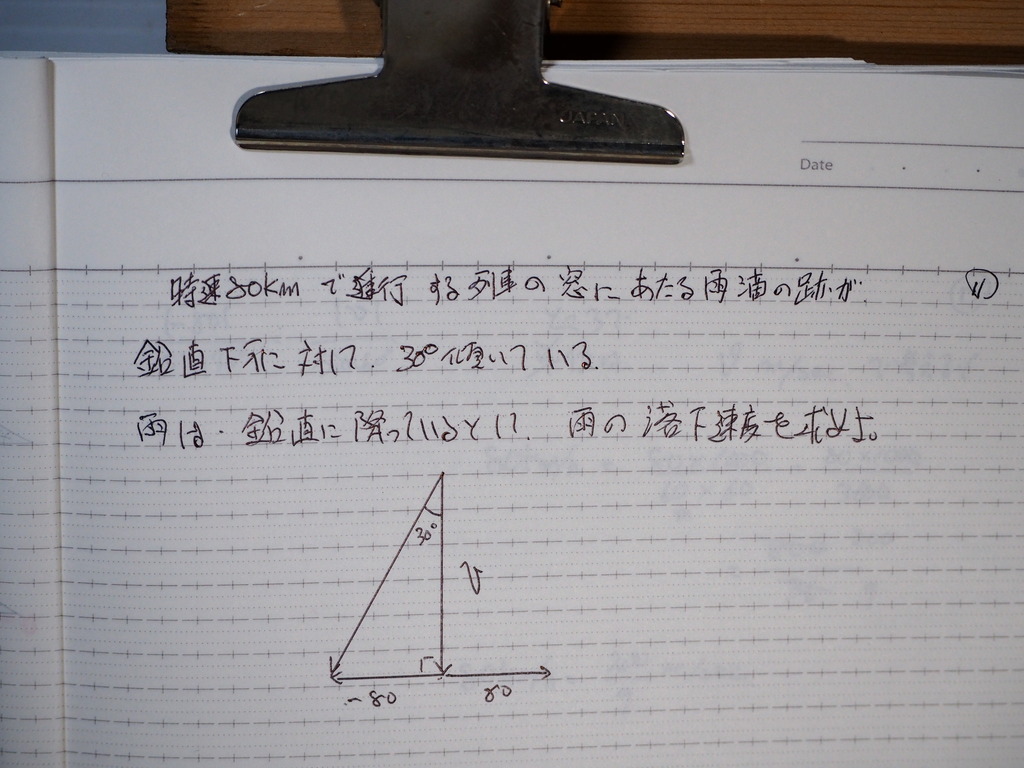 JAPAN
Date
時速80kmで進行する列車の窓にあたる雨滴の跡が、
鉛直下方に対して、30°傾いている。
雨は、鉛直に降っているとして、雨の落下速度を求めよ。
30°
v
-80 80